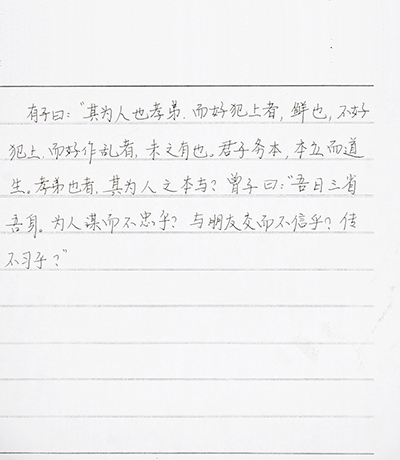 有子曰：“其为人也孝弟，而好犯上者，鲜也，不好
犯上，而好作乱者，未之有也。君子务本，本立而道
生。孝弟也者，其为人之本与？曾子曰：“吾日三省
吾身。为人谋而不忠乎？与朋友交而不信乎？传
不习乎？”